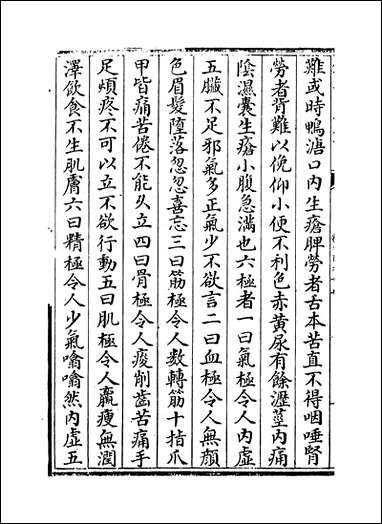 難或時鴨溏口內生瘡脾勞者古本苦直不得咽唾腎
勞者背難以俛仰小便不利色赤黃尿有餘瀝莖內痛
陰濕囊生瘡小腹急滿也六極者一曰氣極令人內虛
五臟不足邪氣多正氣少不欲言二曰血極令人無顏
色眉髮墮落忽忽喜忘三曰筋極令人數轉筋十指爪
甲皆痛苦倦不能久立四曰骨極令人痠削齒苦痛手
足煩疼不可以立不欲行動五曰肌極令人羸瘦無潤
澤飲食不生肌膚六曰精極令人少氣噏噏然內虛五